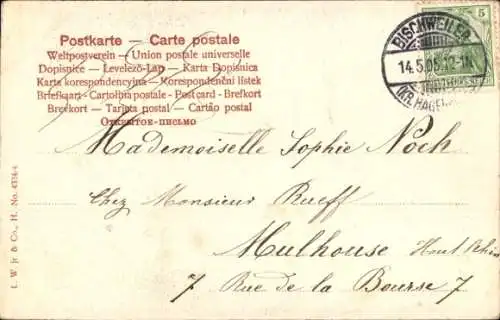 Postkarte — Carte postale
Weltpostverein — Union postale universelle
Dopisnice — Levelező-Lap — Karta Dopisnica
Karta korespondencyjna — Korespondenční lístek
Briefkaart — Cartolina postale — Post card — Brefkort
Brevkort — Tarjeta postal — Cartão postal
Открытое письмо
5
BISCHWEILER
14.5.05.12-1N.
(KR. HAGEN
Mademoiselle Sophie Noch
Chez Monsieur Rueff
Mulhouse Haut Rhin
7 Rue de la Bourse 7
L. W. jr & Co., H. No. 4374-4